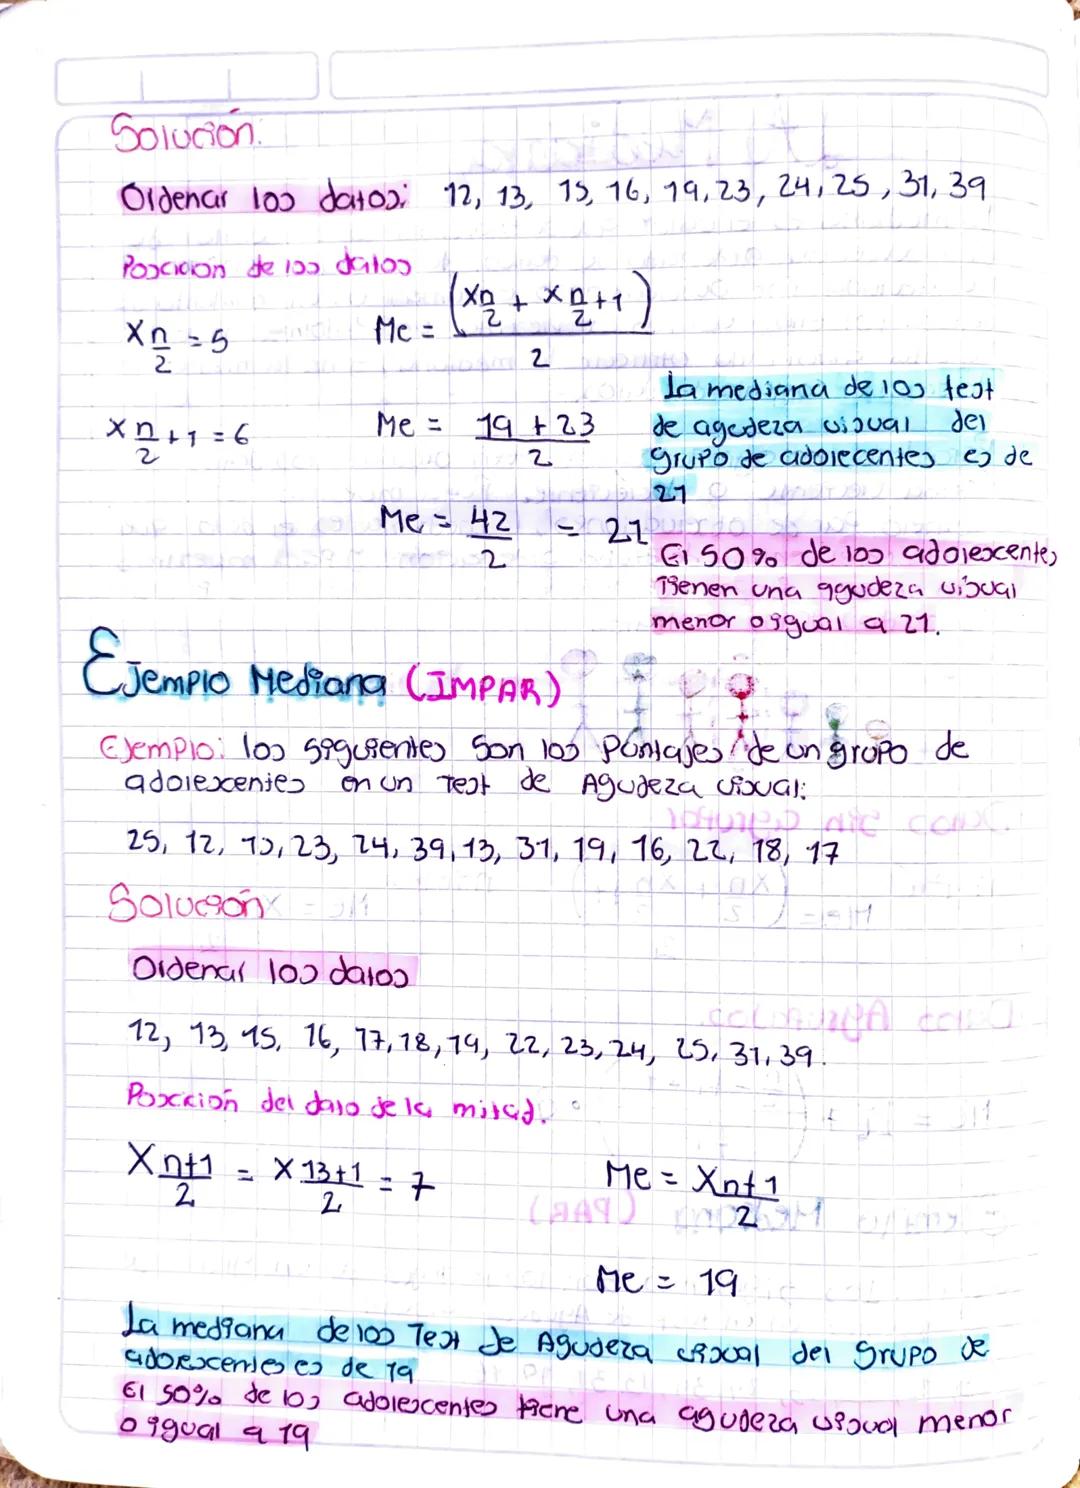 Solución:
Ordenar los datos: 12, 13, 15, 16, 19, 23, 24, 25, 31, 39
Posicion de los datos
Xn/2 = 5
Me = (Xn/2 + Xn/2+1) / 2
Xn/2+1 = 6
Me = 19 + 23 / 2
Me = 42/2 = 21
La mediana de los test
de agudeza visual del
grupo de adolecentes es de
21
El 50% de los adolescentes
Tienen una agudeza visual
menor o igual a 21.
Ejemplo Mediana (IMPAR)
Ejemplo: los siguientes son los Puntajes de un grupo de
adolescentes en un Test de Agudeza visual:
25, 12, 15, 23, 24, 39, 13, 31, 19, 16, 22, 18, 17
Solución
Ordenar los datos
12, 13, 15, 16, 17, 18, 19, 22, 23, 24, 25, 31, 39.
Posición del dato de la mitad.
Xn+1/2 = X13+1/2 = 7
Me = Xn+1/2
Me = 19
La mediana de los Test de Agudeza visual del grupo de
adorescentes es de 19
El 50% de los adolescentes tiene una agudeza visual menor
o igual a 19